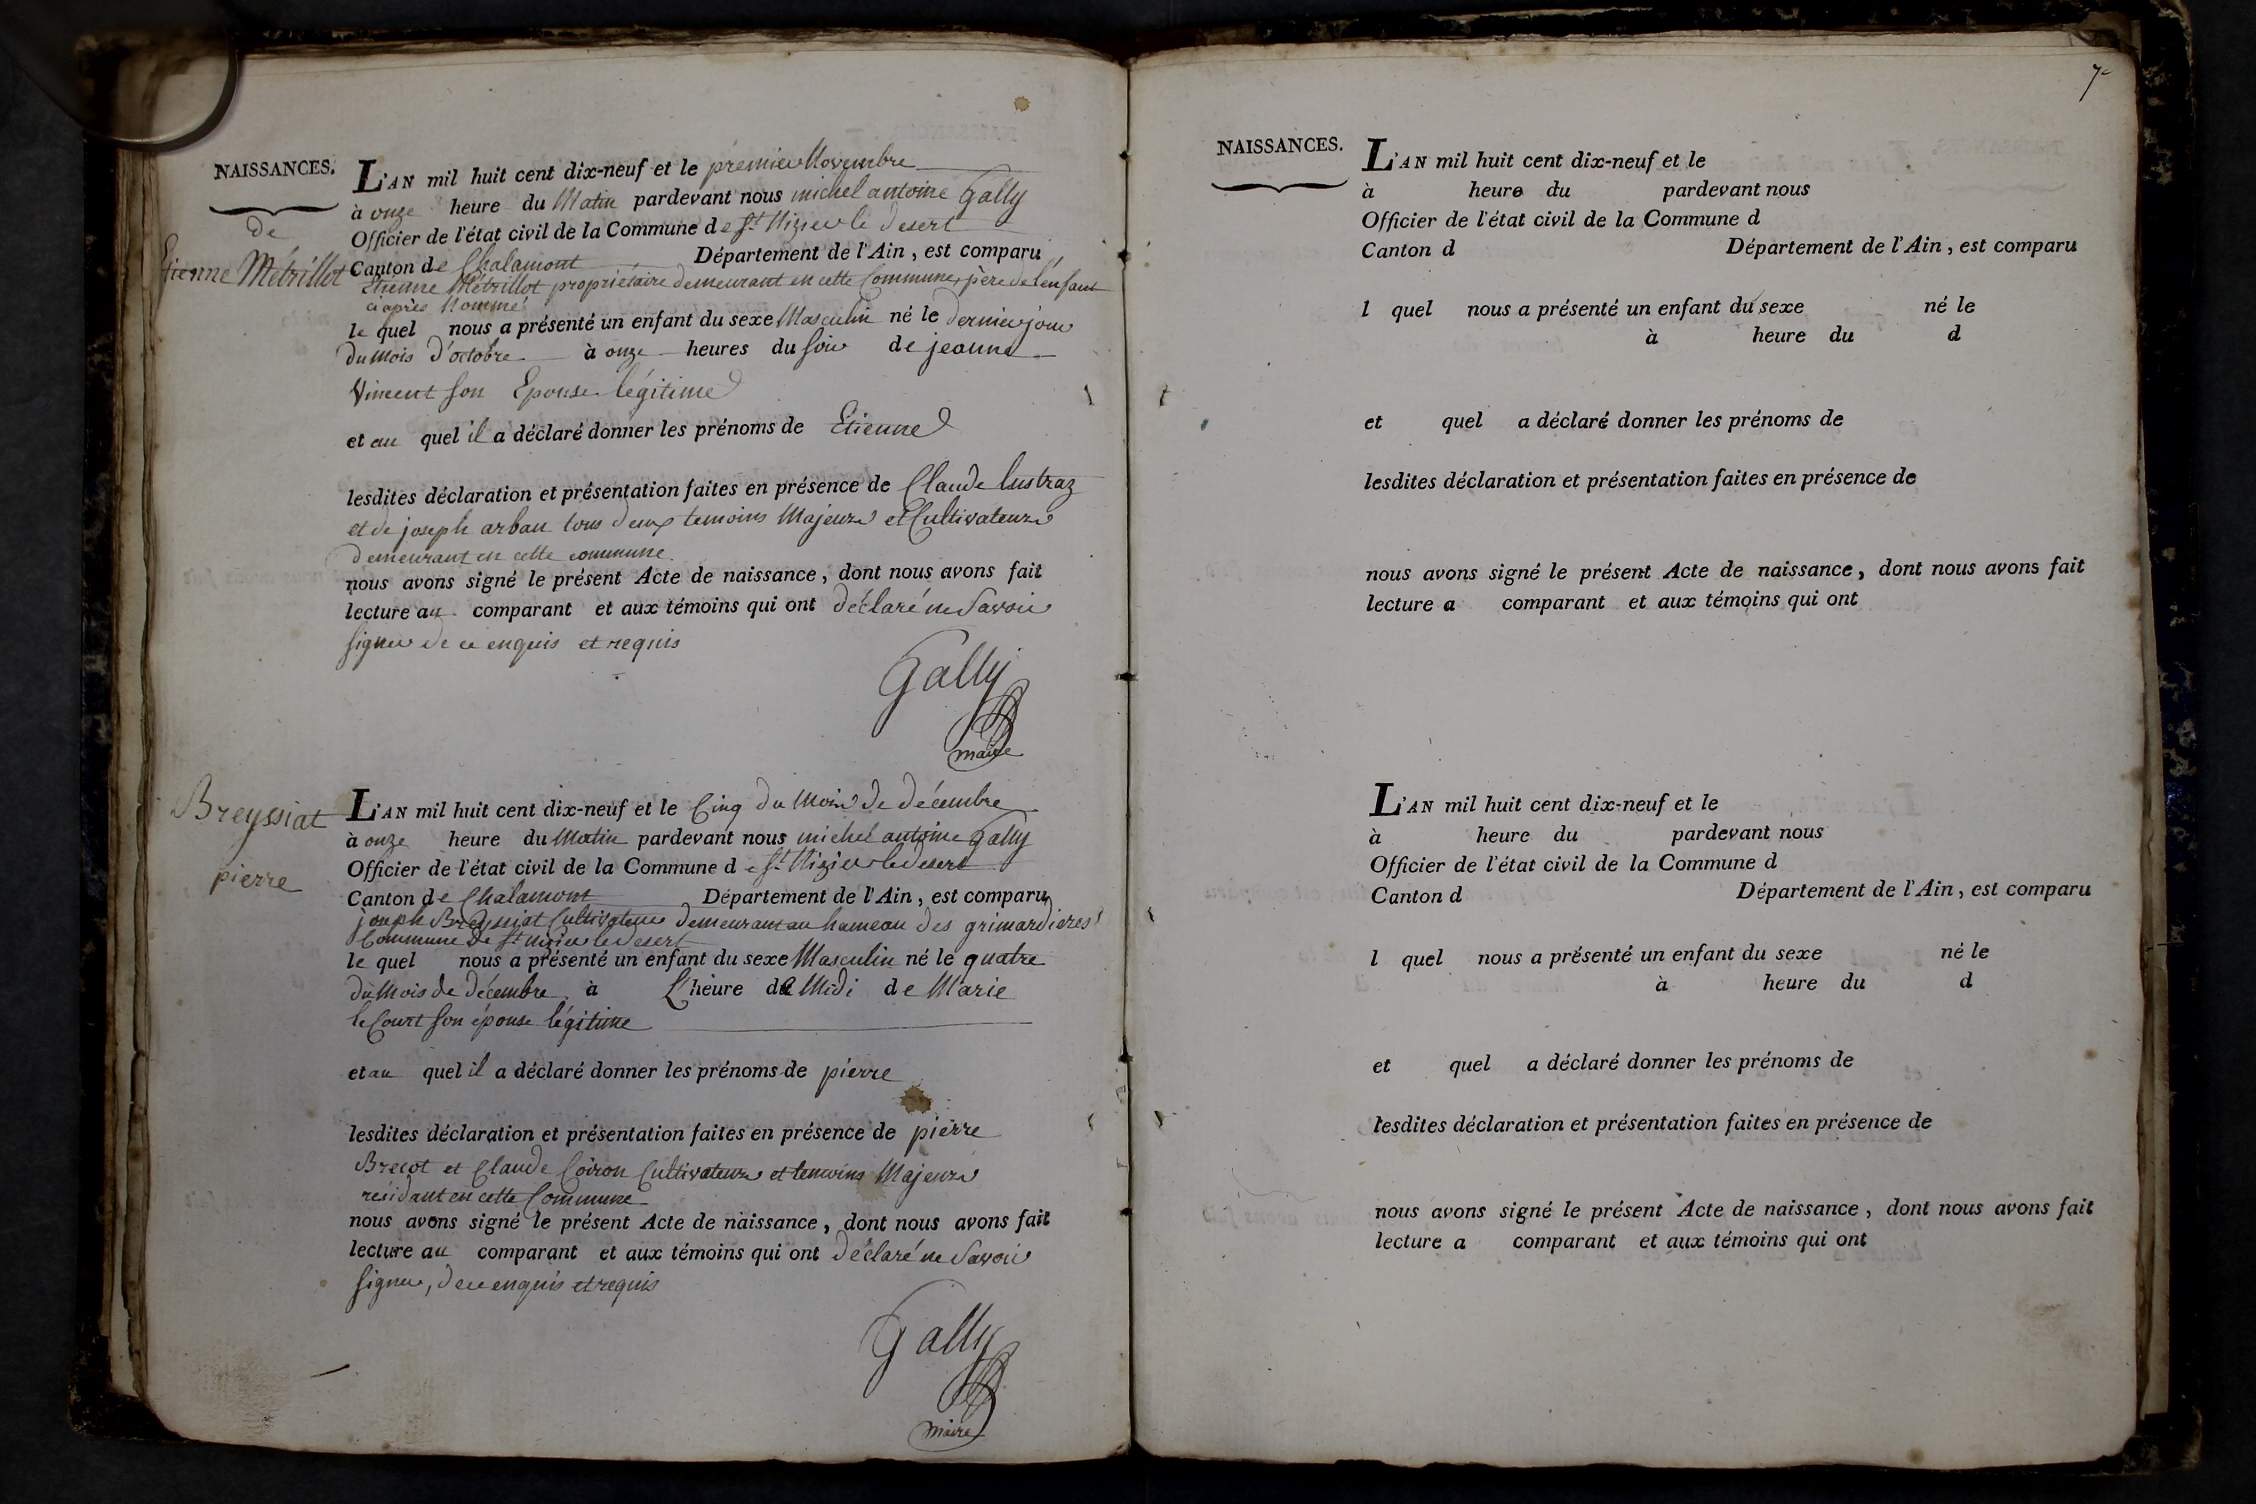 NAISSANCES.
de
Etienne Métrillot
L'AN mil huit cent dix-neuf et le premier Novembre
à onze heure du Matin pardevant nous michel antoine Gally
Officier de l'état civil de la Commune de St Nizier le Desert
Canton de Chalamont Département de l'Ain, est comparu
Etienne Métrillot propriétaire demeurant en cette Commune, père de l'enfant
ciaprès Nommé
le quel nous a présenté un enfant du sexe Masculin né le dernier jour
du Mois d'octobre à onze heures du soir de jeanne
Vincent son Epouse légitime
et au quel il a déclaré donner les prénoms de Etienne
lesdites déclaration et présentation faites en présence de Claude Lustraz
et de joseph arban tous deux temoins Majeurs et Cultivateurs
demeurant en cette commune
nous avons signé le présent Acte de naissance, dont nous avons fait
lecture au comparant et aux témoins qui ont déclaré ne Savoir
signer de ce enquis et requis
Gally
maire
Breyssiat
pierre
L'AN mil huit cent dix-neuf et le Cinq du Mois de décembre
à onze heure du Matin pardevant nous michel antoine Gally
Officier de l'état civil de la Commune de St Nizier le Desert
Canton de Chalamont Département de l'Ain, est comparu
joseph Breyssiat Cultivateur demeurant au hameau des grimardieres
Commune de St nizier le desert
le quel nous a présenté un enfant du sexe Masculin né le quatre
du Mois de décembre à L'heure de Midi de Marie
le Court son épouse légitime
et au quel il a déclaré donner les prénoms de pierre
lesdites déclaration et présentation faites en présence de pierre
Brecot et Claude Coiron Cultivateurs et temoins Majeurs
residant en cette Commune
nous avons signé le présent Acte de naissance, dont nous avons fait
lecture au comparant et aux témoins qui ont déclaré ne Savoir
signer, de ce enquis et requis
Gally
maire
7
NAISSANCES.
L'AN mil huit cent dix-neuf et le
à heure du pardevant nous
Officier de l'état civil de la Commune d
Canton d Département de l'Ain, est comparu
l quel nous a présenté un enfant du sexe né le
à heure du d
et quel a déclaré donner les prénoms de
lesdites déclaration et présentation faites en présence de
nous avons signé le présent Acte de naissance, dont nous avons fait
lecture a comparant et aux témoins qui ont
L'AN mil huit cent dix-neuf et le
à heure du pardevant nous
Officier de l'état civil de la Commune d
Canton d Département de l'Ain, est comparu
l quel nous a présenté un enfant du sexe né le
à heure du d
et quel a déclaré donner les prénoms de
lesdites déclaration et présentation faites en présence de
nous avons signé le présent Acte de naissance, dont nous avons fait
lecture a comparant et aux témoins qui ont